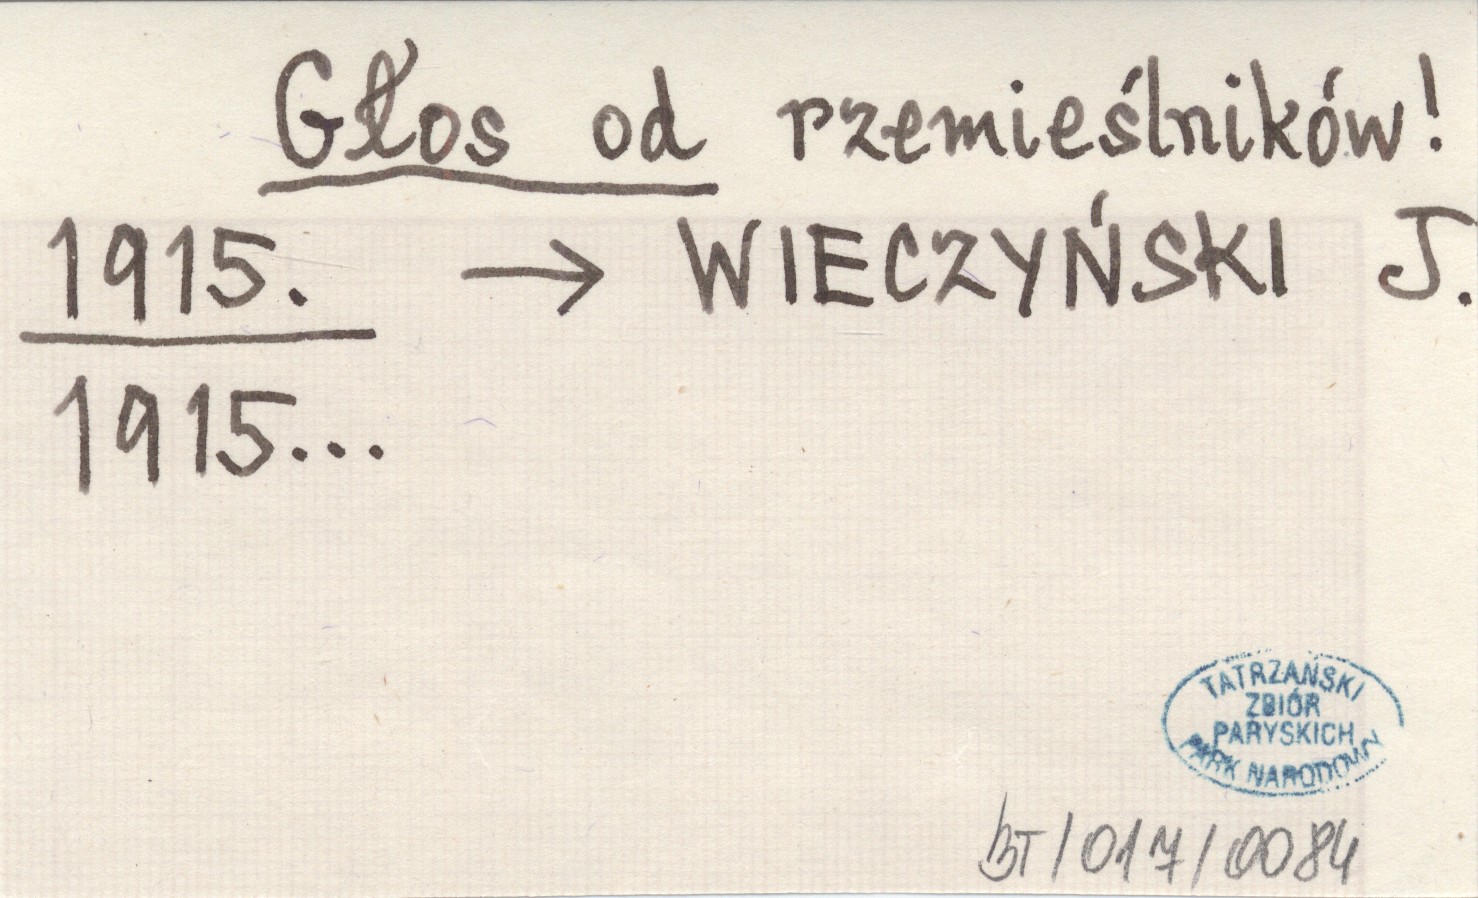 Głos od rzemieślników!
1915. → WIECZYŃSKI J.
1915...
TATRZAŃSKI
ZBIÓR
PARYSKICH
PARK NARODOWY
BT/017/0084